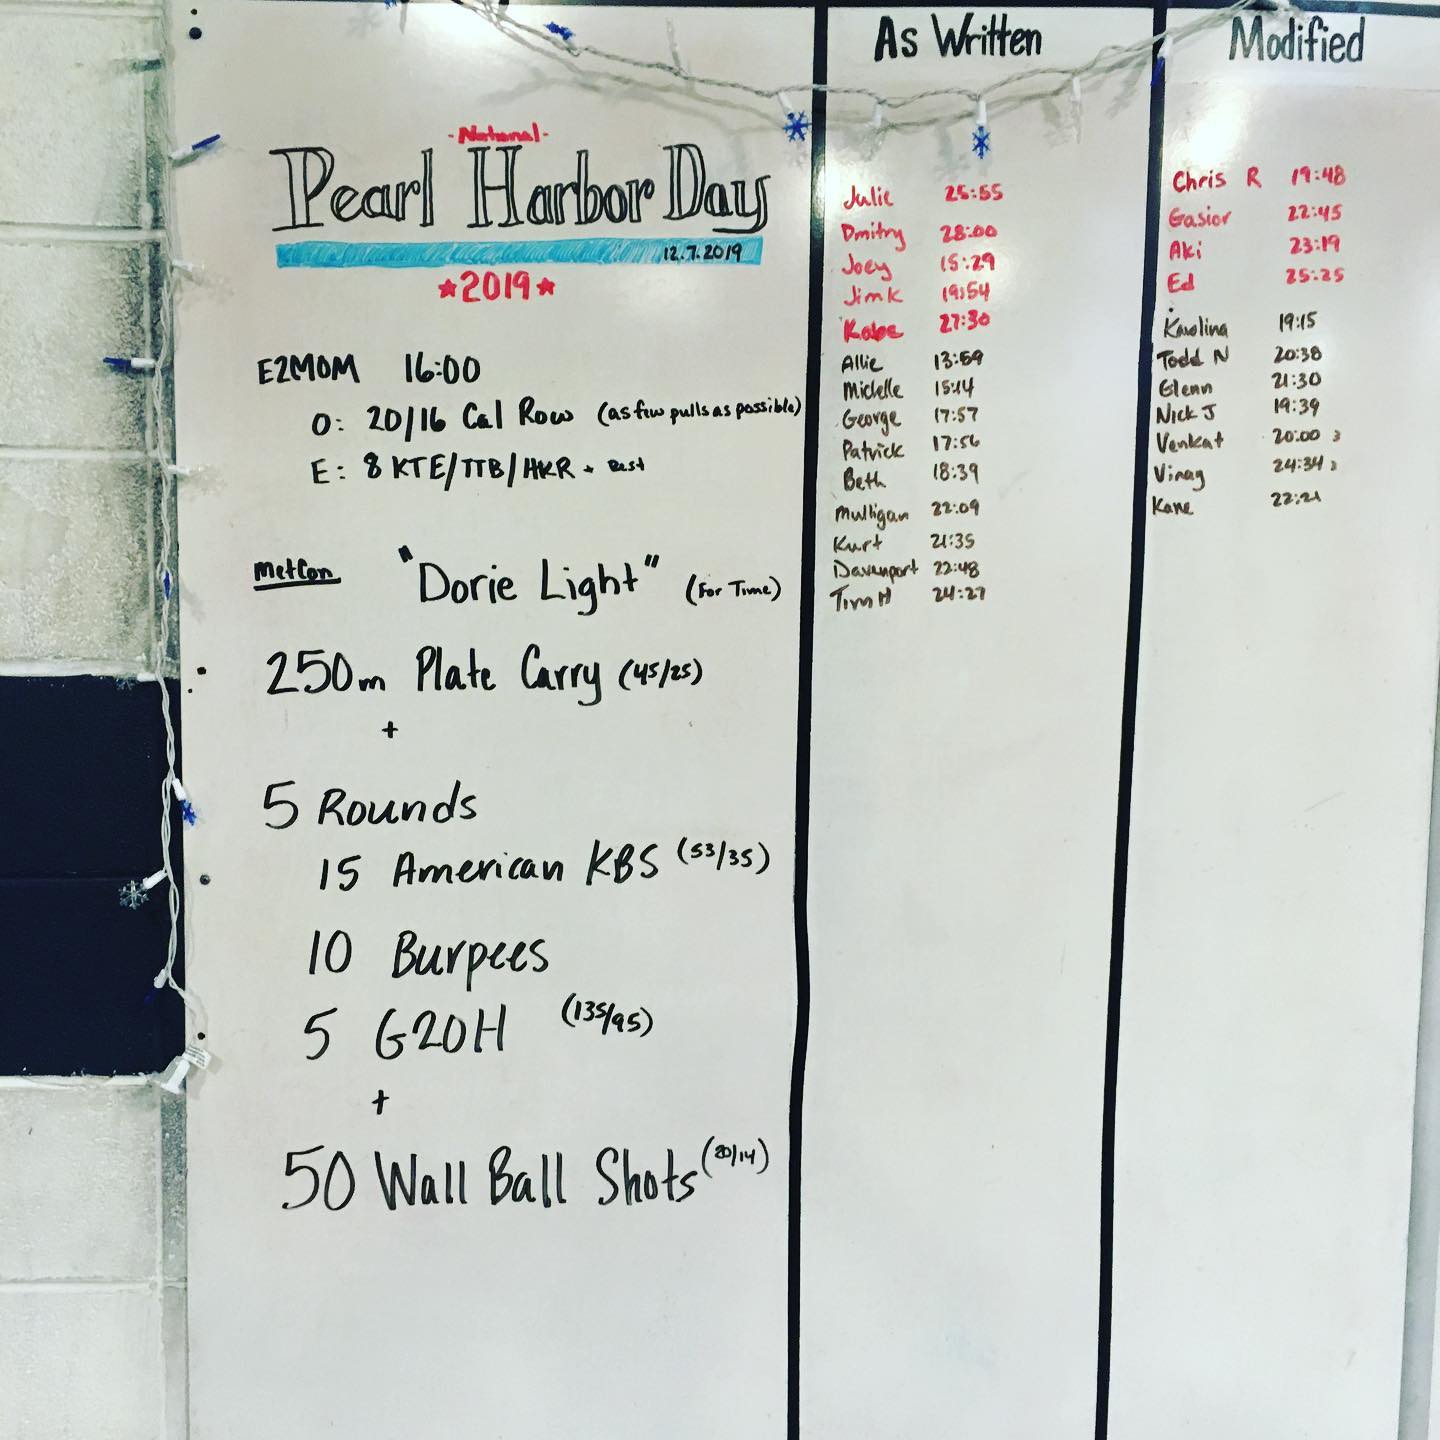 -National-
Pearl Harbor Day
12.7.2019
★2019★
E2MOM 16:00
O: 20/16 Cal Row (as few pulls as possible)
E: 8 KTE/TTB/HKR + Rest
MetCon "Dorie Light" (For Time)
250m Plate Carry (45/25)
+
5 Rounds
15 American KBS (53/35)
10 Burpees
5 G2OH (135/95)
+
50 Wall Ball Shots (20/14)
As Written
Julie 25:55
Dmitry 28:00
Joey 15:29
Jim K 19:54
Kobe 27:30
Allie 13:59
Michelle 15:14
George 17:57
Patrick 17:56
Beth 18:39
Mulligan 22:09
Kurt 21:35
Davenport 22:48
Tim H 24:27
Modified
Chris R 19:48
Gasior 22:45
Aki 23:19
Ed 25:25
Karolina 19:15
Todd N 20:38
Glenn 21:30
Nick J 19:39
Venkat 20:00
Vinay 24:34
Kane 22:21